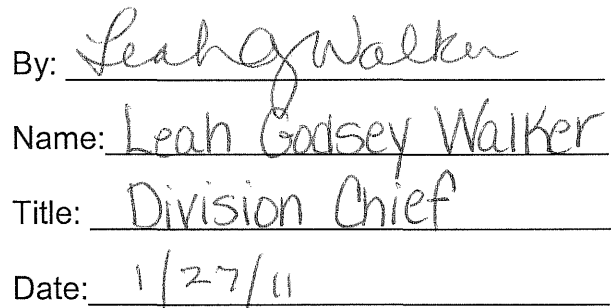 By: Leah G Walker
Name: Leah Godsey Walker
Title: Division Chief
Date: 1/27/11